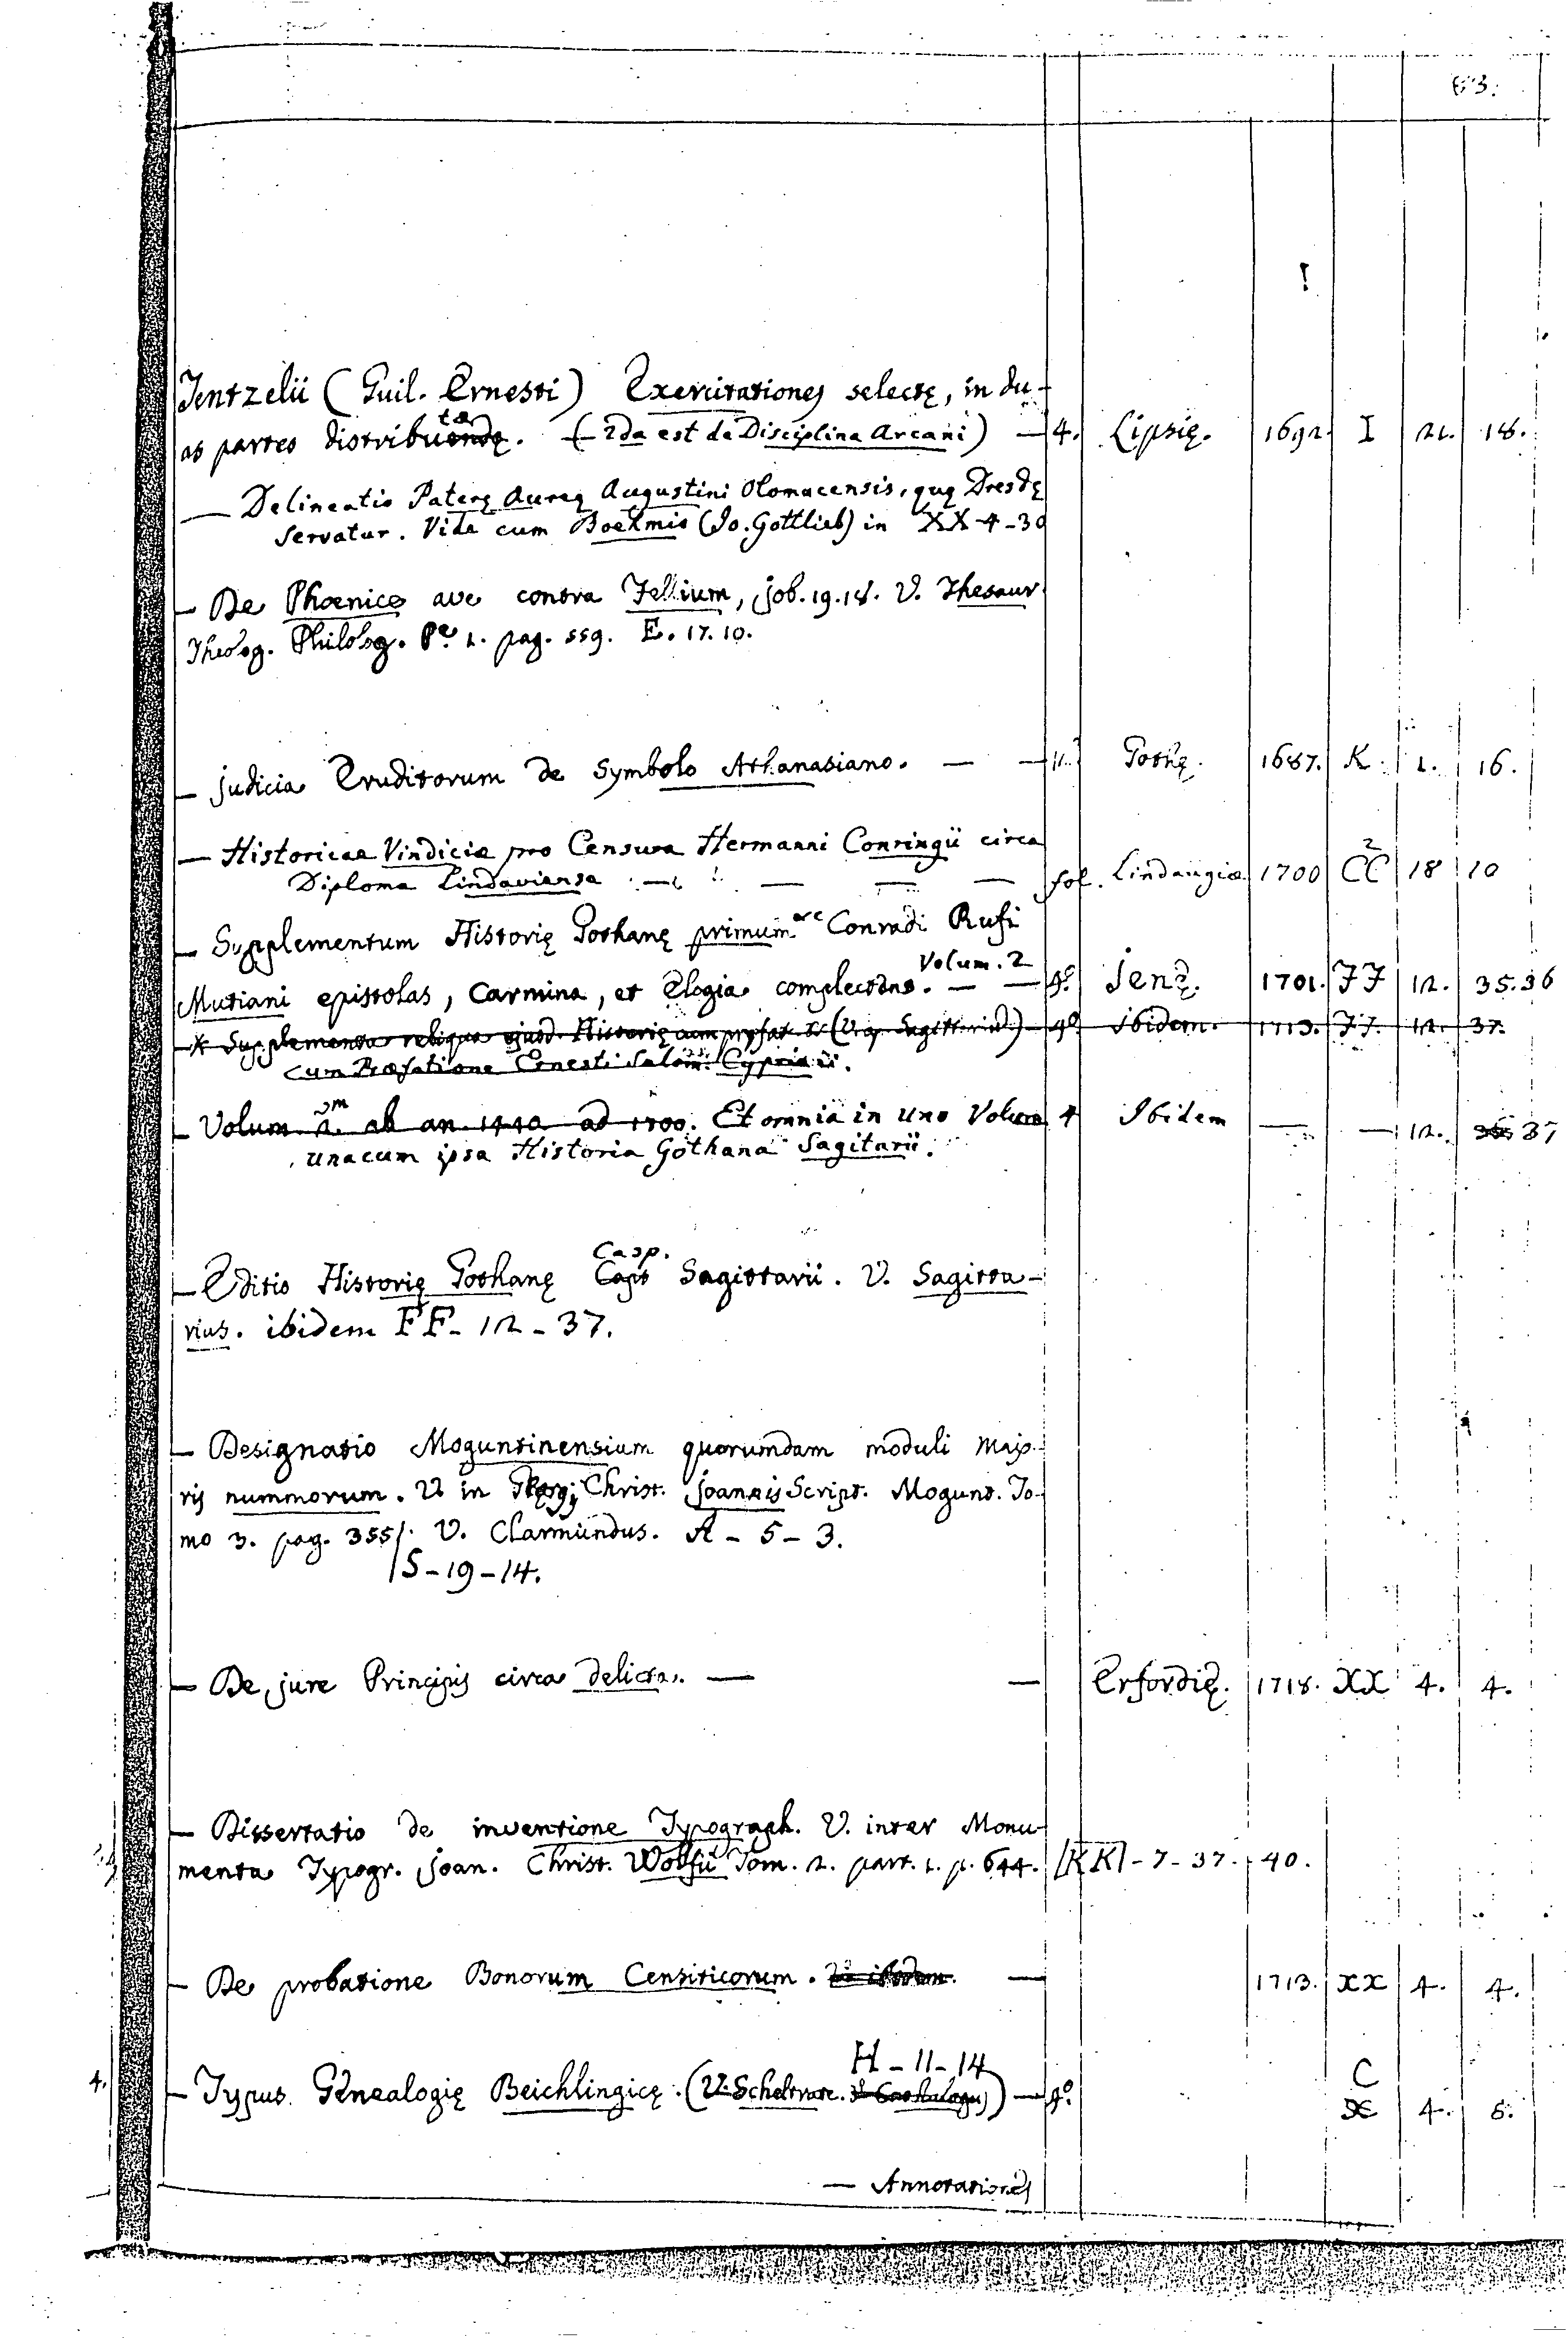 63.
Tentzelii (Guil. Ernesti) Exercitationes selectę, in du-
as partes distributae. (2da est de Disciplina Arcani) — 4. Lipsię. 1692. I 21. 18.
— Delineatio Paterę Aureę Augustini Olomucensis, quę Dresdę
servatur. Vide cum Boehmio (Jo. Gottlieb) in XX-4-30
— De Phoenice ave contra Fellium, job. 19.18. V. Thesaur.
Theolog. Philolog. Pe. 1. pag. 559. E. 17. 10.
— Judicia Eruditorum de Symbolo Athanasiano. — — Gothę. 1687. K. 1. 16.
— Historicae Vindiciæ pro Censura Hermanni Conringii circa
Diploma Lindaviense — — — — fol. Lindaugiæ 1700 CC 2 18 10
— Supplementum Historię Gothanę primum Conradi Rufi
Volum. 2
Mutiani epistolas, Carmina, et Elogia complectens. — — 4º. Jenę. 1701. FF 12. 35.36
— Supplementa reliqua ejusd. Historię cum pręfat. — 4º ibidem. 1713. FF. 12. 37.
cum Præfatione Ernesti Salom. Cypriani.
— Volum. 2.um ab an. 1440 ad 1700. Et omnia in uno Volum 4 Ibidem — — 12. 37
unacum ipsa Historia Gothana Sagitarii.
Casp.
— Editio Historię Gothanę Sagittarii. V. Sagitta-
rius. ibidem FF- 12 - 37.
— Designatio Moguntinensium quorumdam moduli Majo-
ris nummorum. V. in Georgij Christ. Joannis Script. Mogunt. To-
mo 3. pag. 355/. V. Clarmundus. A - 5 - 3.
/S-19-14.
— De jure Principis circa delicta. — — Erfordię. 1718. XX 4. 4.
— Dissertatio de inventione Typograph. V. inter Monu-
menta Typogr. Joan. Christ. Wolfii Tom. 2. part. 1. p. 644. |KK| - 7- 37. - 40.
— De probatione Bonorum Censiticorum. — 1713. XX 4. 4.
H - 11 - 14 C
4. — Typus Genealogię Beichlingicę. (V. ) — 4º. 4. 6.
— Annotationes